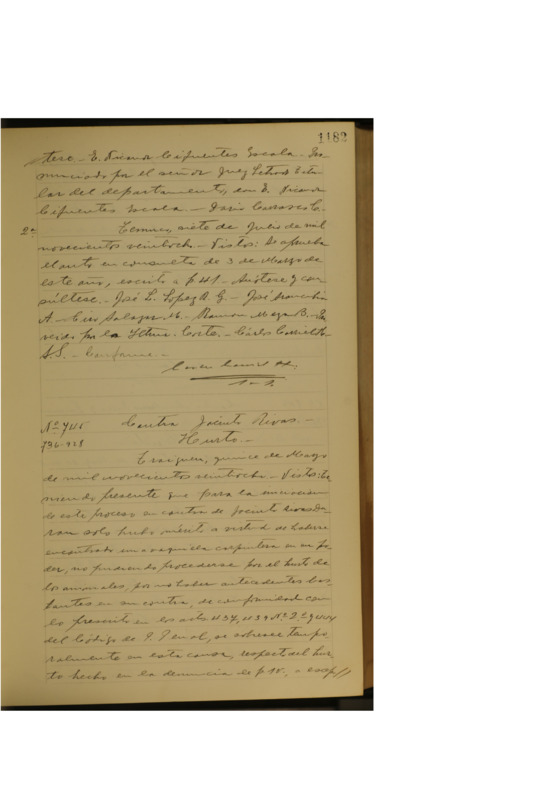 1182
tese. - E. Nicanor Cifuentes Escala. - Pro
nunciado por el señor Juez Letrado titu
lar del departamento, don E. Nicanor
Cifuentes Escala. - Dario Carrasco C.
2ª Temuco, siete de Julio de mil
novecientos veintiocho. - Vistos: Se aprueba
el auto en consulta de 3 de Mayo de
este año, escrito a f 41. - Anótese y con
súltese. - José L. Lopez A. G. - José
A. - Ciro Salazar M. - Ramon Meza B. - Pro
veido por la Iltma. Corte. - Cárlos
S.S. - Conforme. -
Nº 745 Contra Jacinto Rivas. -
736-928 Hurto. -
Traiguen, quince de Mayo
de mil novecientos veintiocho. - Vistos: Te
niendo presente que para la
de este proceso en contra de Jacinto Rivas
tan solo hubo mérito a virtud de haberse
encontrado en su po
der, no pudiendo procederse por el hurto de
los animales, por no haber antecedentes bas
tantes en su contra, de conformidad con
lo prescrito en los arts 437, 439 Nº 2º y
del Código de P. Penal, se sobresee tempo
ralmente en esta causa, respecto del hur
to hecho en la denuncia de f 18, -